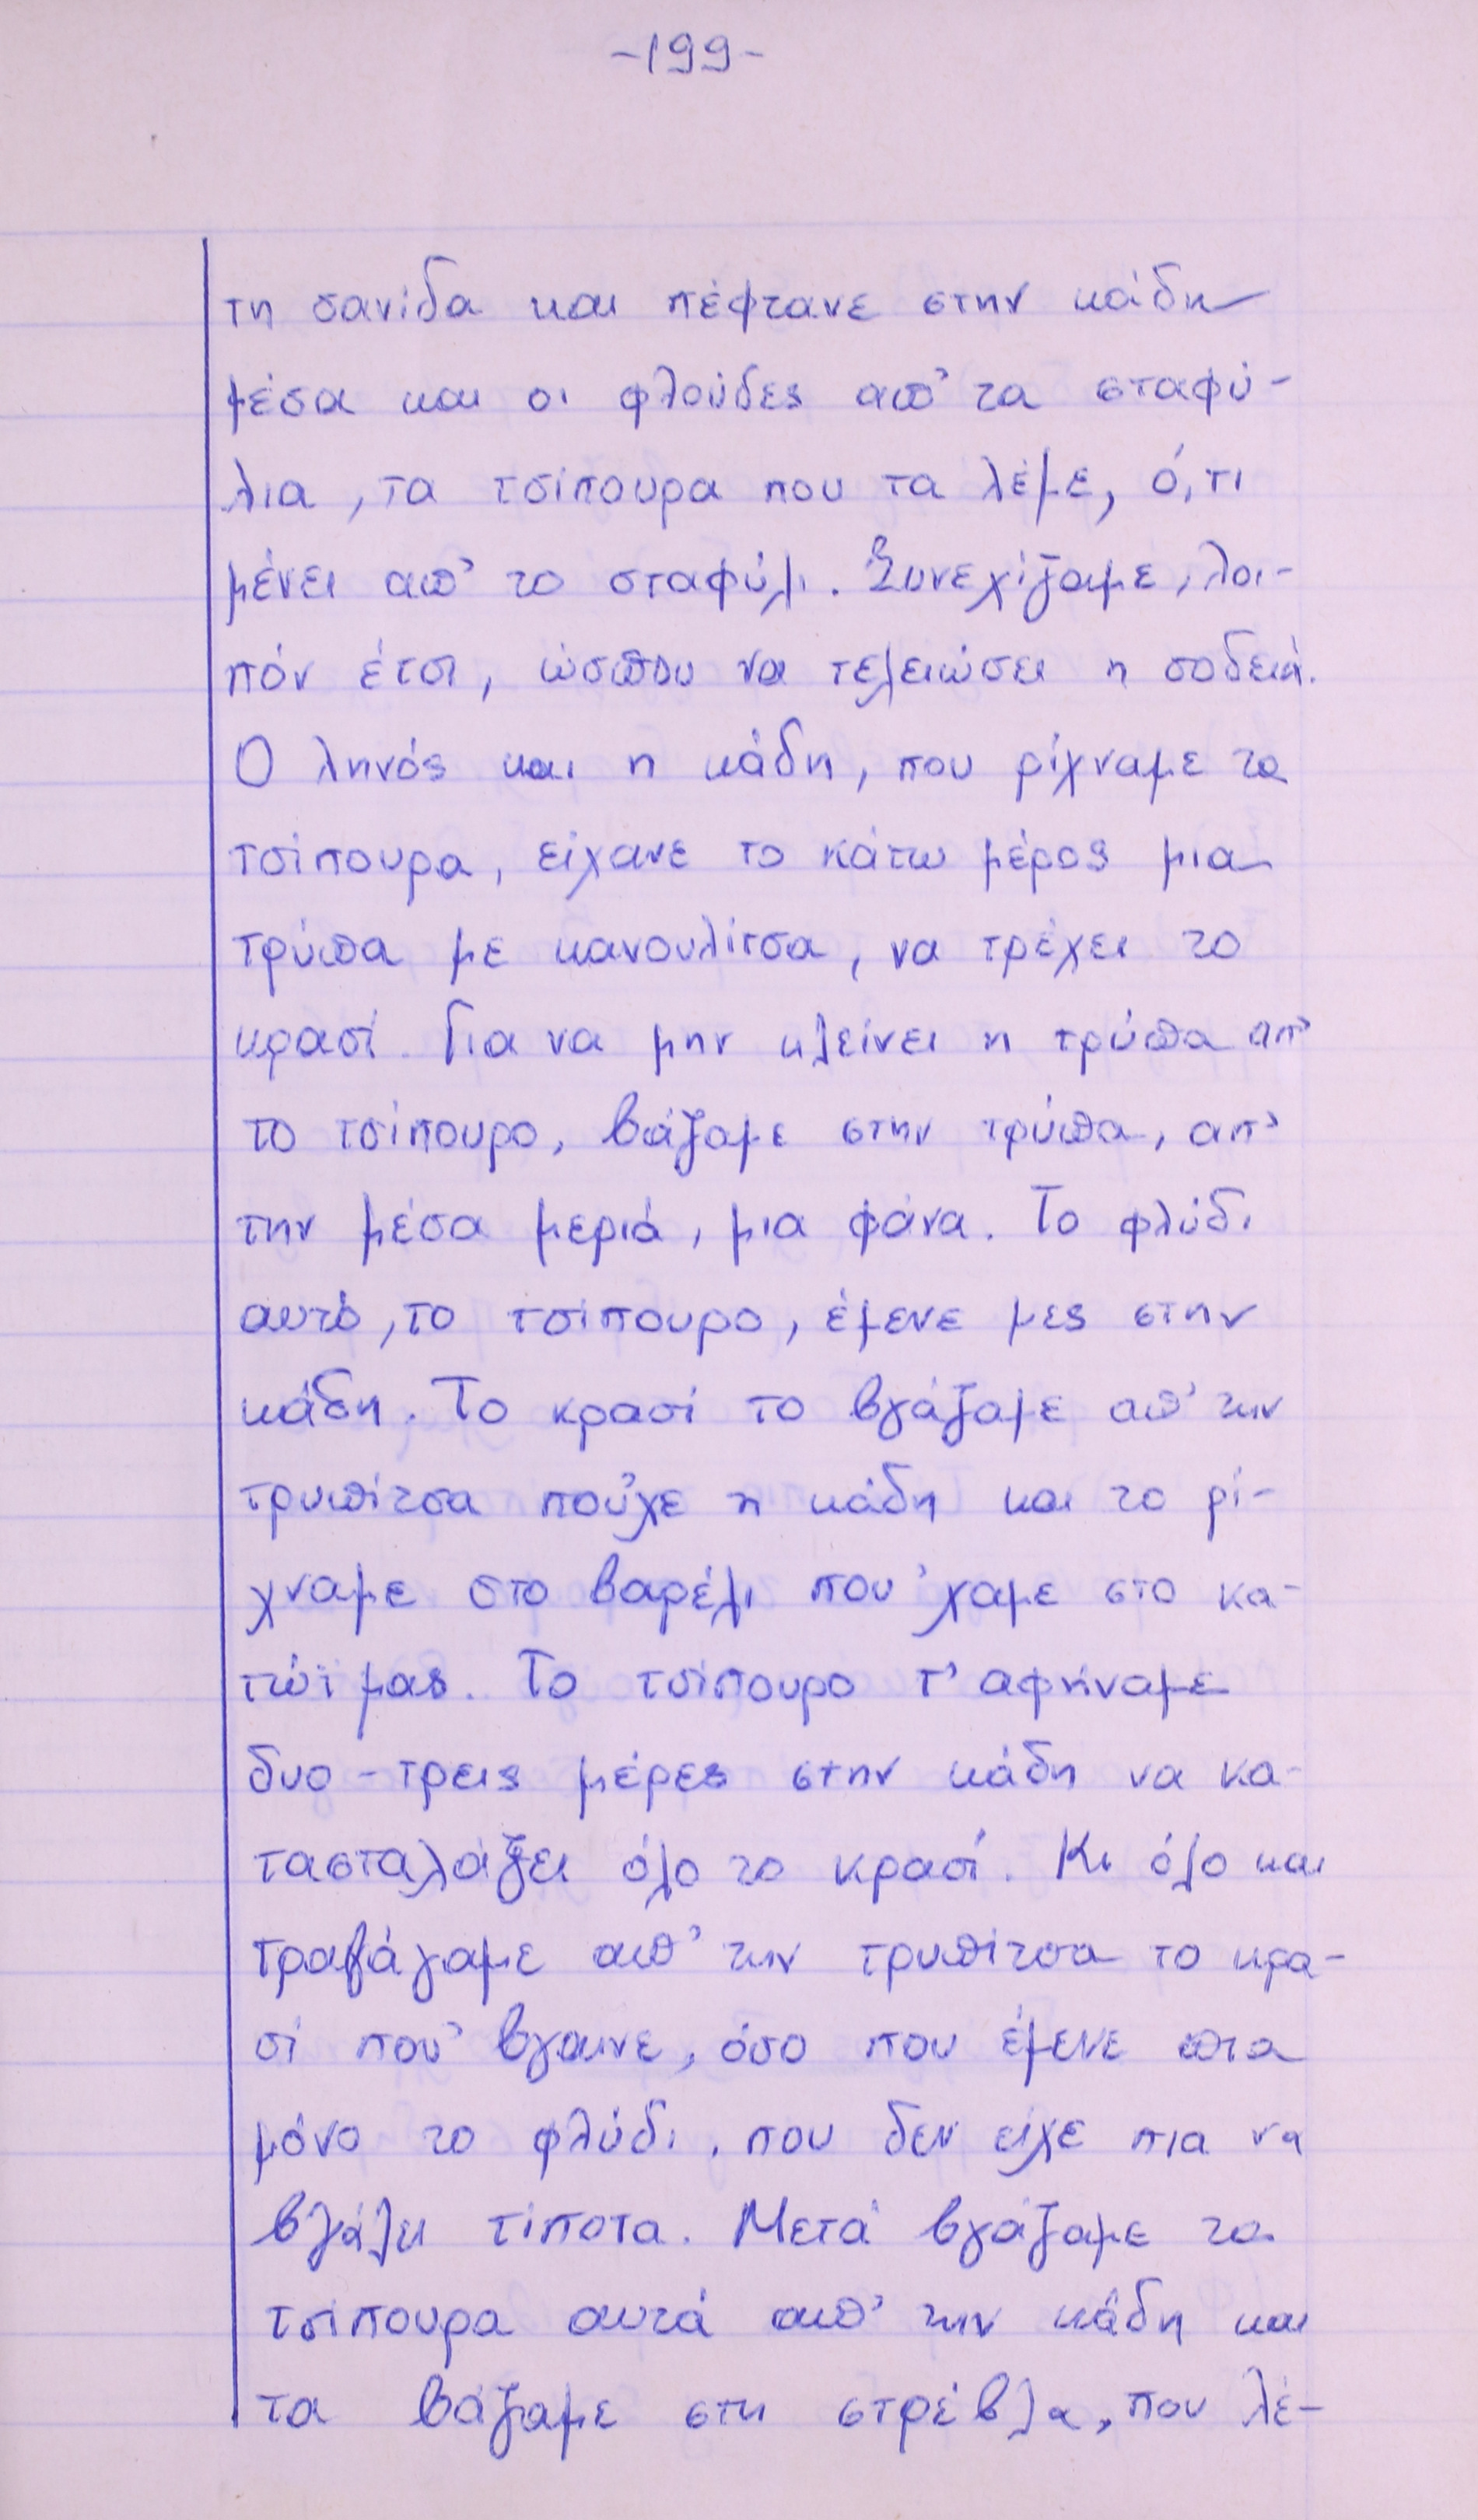 -199-
τη σανίδα και πέφτανε στην κάδη
μέσα και οι φλούδες απ' τα σταφύ-
λια, τα τσίπουρα που τα λέμε, ό,τι
μένει απ' το σταφύλι. Συνεχίζαμε, λοι-
πόν έτσι, ώσπου να τελειώσει η σοδειά.
Ο ληνός και η κάδη, που ρίχναμε τα
τσίπουρα, είχανε το κάτω μέρος μια
τρύπα με κανουλίτσα, να τρέχει το
κρασί. Για να μην κλείνει η τρύπα απ'
το τσίπουρο, βάζαμε στην τρύπα, απ'
την μέσα μεριά, μια φάνα. Το φλύδι
αυτό, το τσίπουρο, έμενε μες στην
κάδη. Το κρασί το βγάζαμε απ' την
τρυπίτσα πού'χε η κάδη και το ρί-
χναμε στο βαρέλι που 'χαμε στο κα-
τώϊ μας. Το τσίπουρο τ' αφήναμε
δυο-τρεις μέρες στην κάδη να κα-
τασταλάξει όλο το κρασί. Κι όλο και
τραβάγαμε απ' την τρυπίτσα το κρα-
σί που' βγαινε, όσο που έμενε πια
μόνο το φλύδι, που δεν είχε πια να
βγάλει τίποτα. Μετά βγάζαμε τα
τσίπουρα αυτά απ' την κάδη και
τα βάζαμε στη στρέβλα, που λέ-